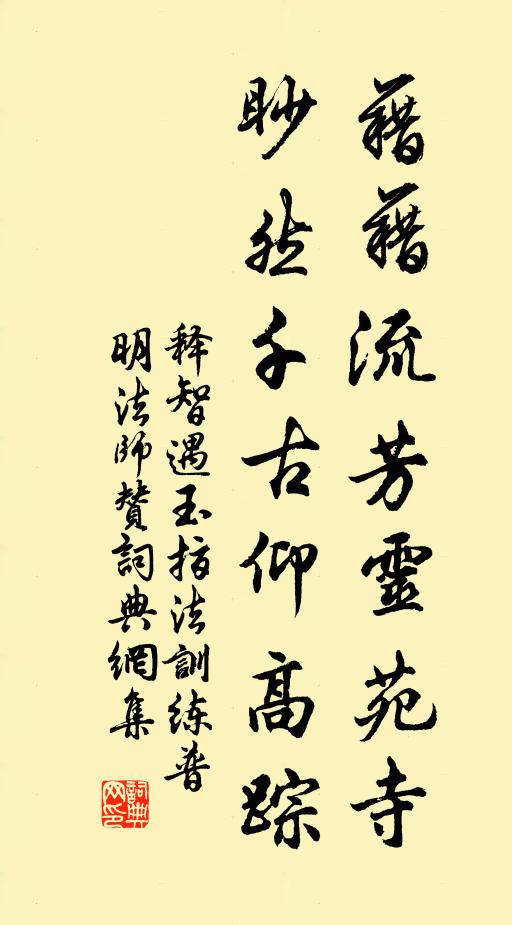 藉藉流芳靈苑寺
眇然千古仰高踪
释智遇玉指法訓练普
明法师賛詞典網集
詞典網印